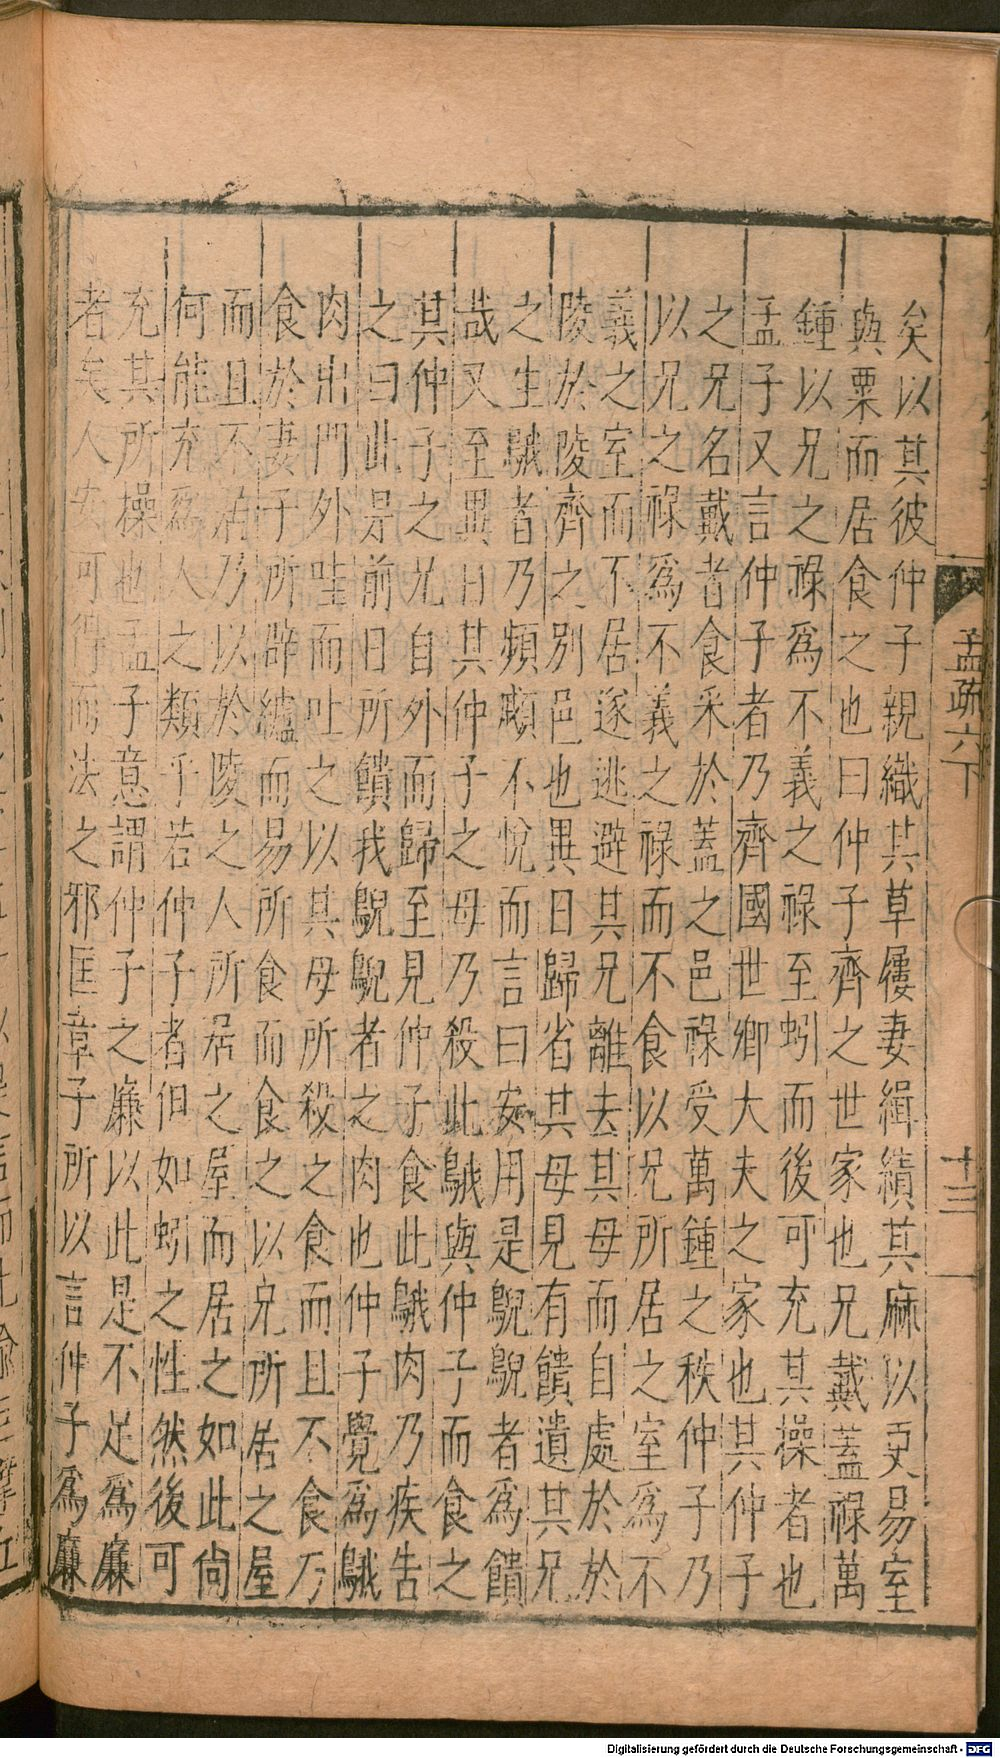 孟疏六下
十三
矣以其彼仲子親織其草屨妻緝績其麻以更易室
與粟而居食之也曰仲子齊之世家也兄戴蓋祿萬
鍾以兄之祿為不義之祿至蚓而後可充其操者也
孟子又言仲子者乃齊國世卿大夫之家也其仲子
之兄名戴者食采於蓋之邑祿受萬鍾之秩仲子乃
以兄之祿為不義之祿而不食以兄所居之室為不
義之室而不居遂逃避其兄離去其母而自處於於
陵於陵齊之別邑也異日歸省其母見有饋遺其兄
之生鵝者乃頻顣不悅而言曰安用是鶃鶃者為饋
哉又至異日其仲子之母乃殺此鵝與仲子而食之
其仲子之兄自外而歸至見仲子食此鵝肉乃疾告
之曰此是前日所饋我鶃鶃者之肉也仲子覺為鵝
肉出門外哇而吐之以其母所殺之食而且不食乃
食於妻子所辟纑而易所食而食之以兄所居之屋
而且不居乃以於陵之人所居之屋而居之如此尚
何能充為人之類乎若仲子者但如蚓之性然後可
充其所操也孟子意謂仲子之廉以此是不足為廉
者矣人安可得而法之邪匡章子所以言仲子為廉
Digitalisierung gefördert durch die Deutsche Forschungsgemeinschaft - DFG